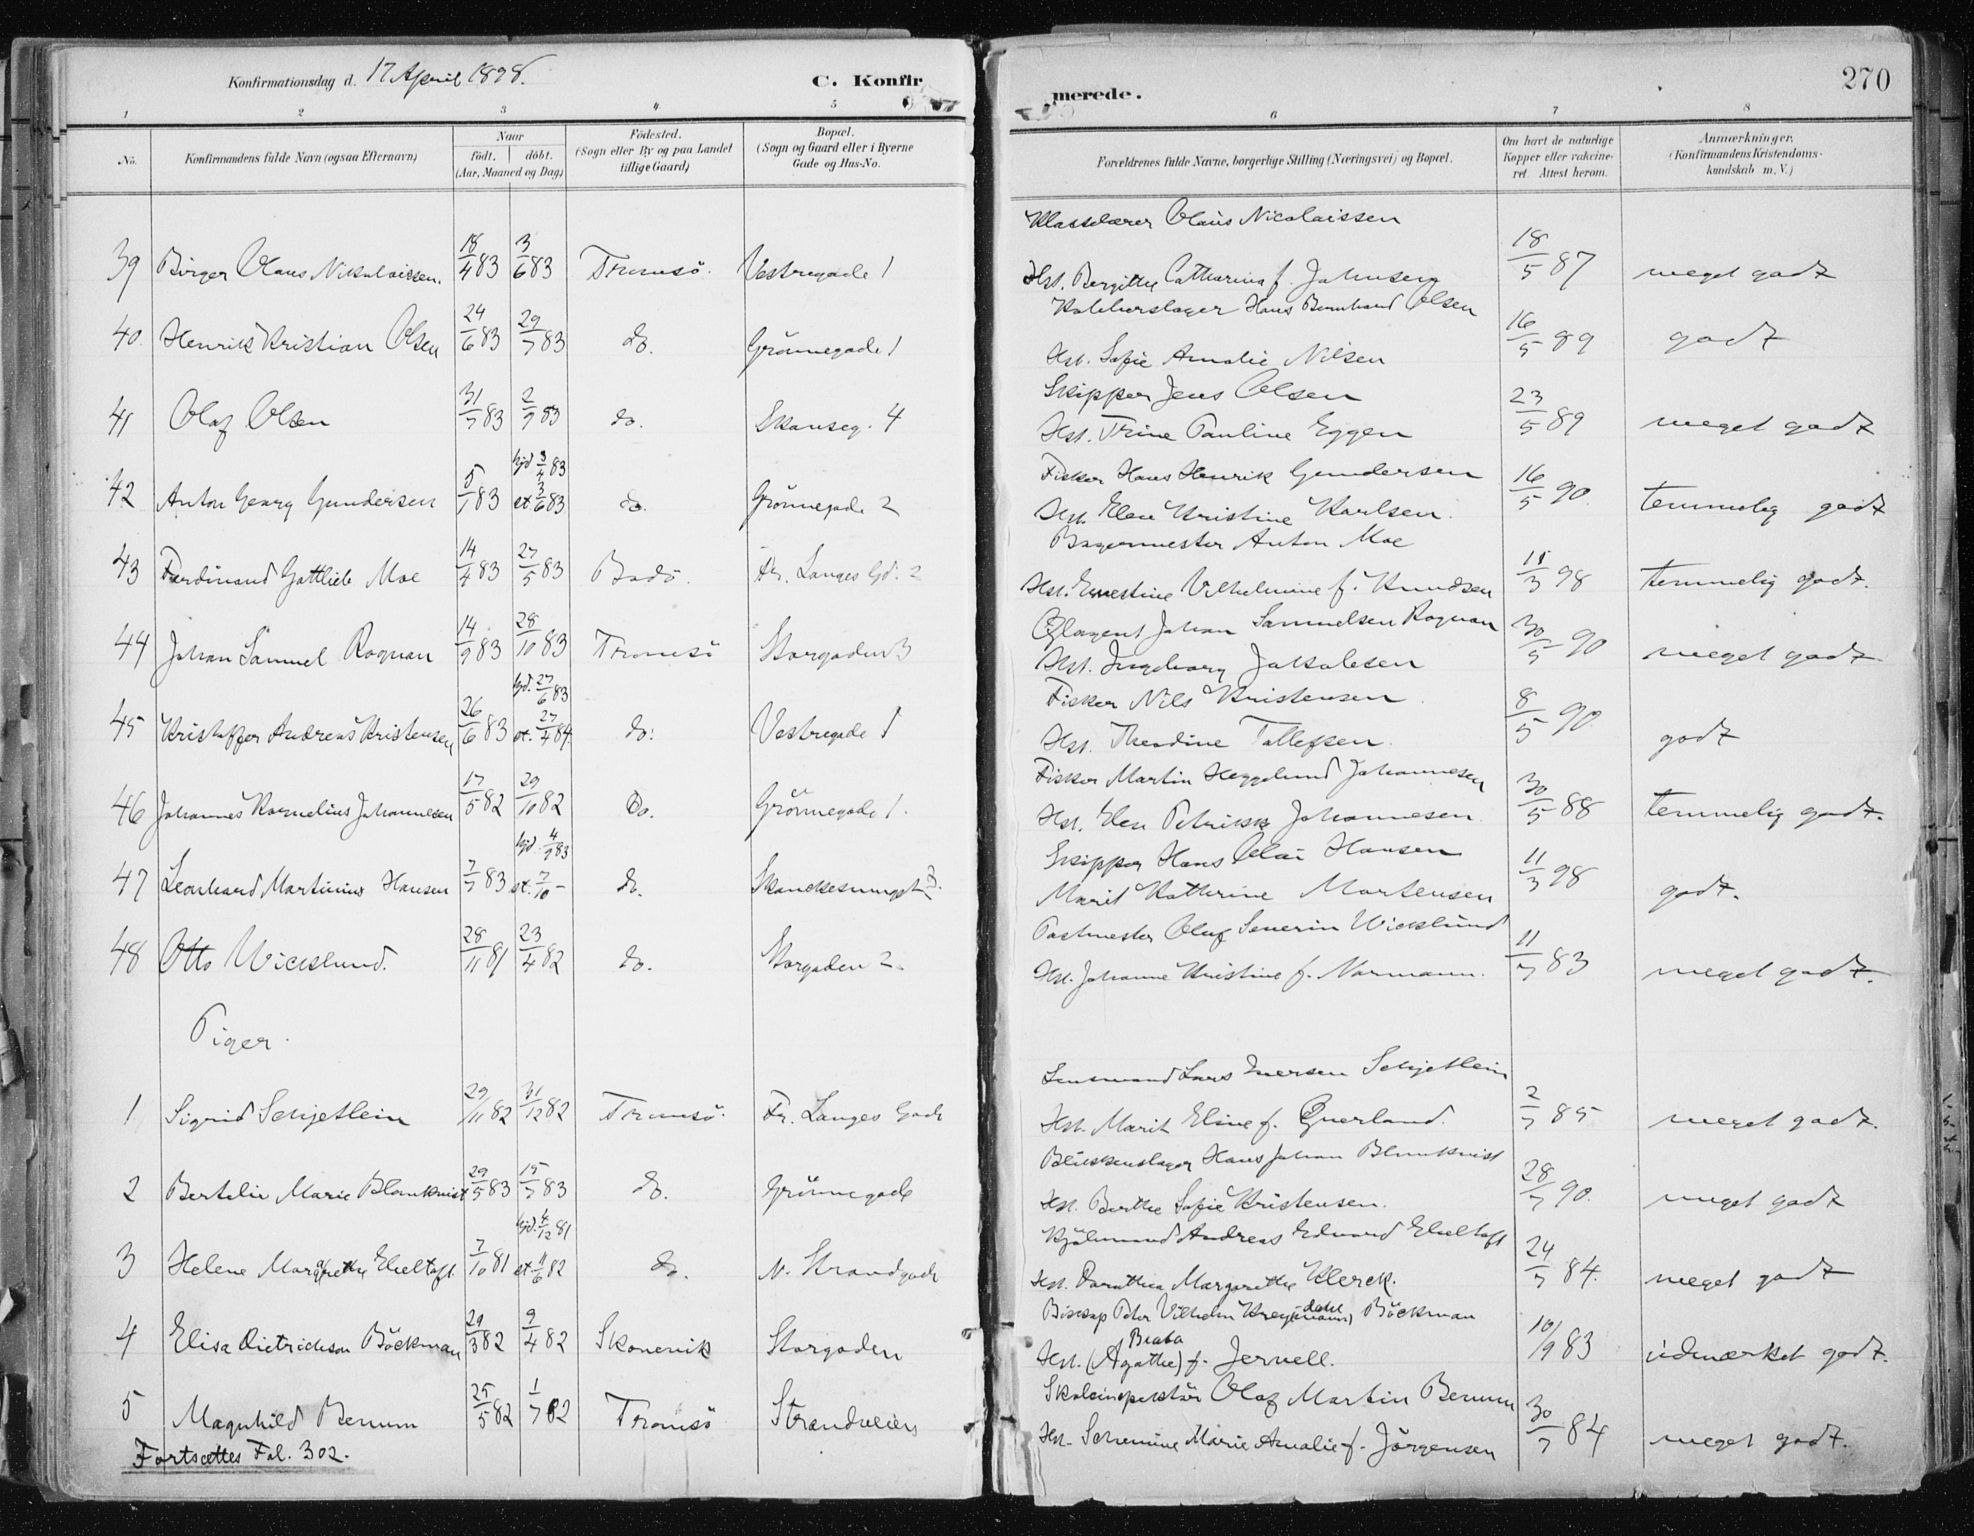 Konfirmationsdag d. 17 April 1898.
C. Konfir
merede.
270
1 2 3 4 5 6 7 8
No.
Konfirmandens fulde Navn (ogsaa Efternavn)
Naar
födt. döbt.
(Aar, Maaned og Dag)
Födested.
(Sogn eller By og paa Landet
tillige Gaard)
Bopæl.
(Sogn og Gaard eller i Byerne
Gade og Hus-No.
Forældrenes fulde Navne, borgerlige Stilling (Næringsvei) og Bopæl.
Om havt de naturlige
Kopper eller vakcine-
ret. Attest herom.
Anmærkninger.
(Konfirmandens Kristendoms-
kundskab m. V.)
Klasselærer Olaus Nicolaissen
39 Birger Olaus Nikolaissen. 18/4 83 3/6 83 Tromsö. Vestregade 1 Hst. Bergitte Catharina f. Johnsen 18/5 87 meget godt
Kobberslager Hans Bernhard Olsen
40. Henrik Kristian Olsen 24/6 83 29/7 83 do. Grönnegade 1 Hst. Sofie Amalie Nilsen 16/5 89 godt
Skipper Jens Olsen
41 Olaf Olsen 31/7 83 2/9 83 do. Skanseg. 4 Hst. Trine Pauline Eggen 23/5 89 meget godt
hjd 3/4 83 Fisker Hans Henrik Gundersen
42 Anton Georg Gundersen 5/1 83 st. 3/6 83 do. Grönnegade 2 Hst. Elen Kristine Karlsen. 16/5 90. temmelig godt
Bagermester Anton Moe
43 Ferdinand Gottlieb Moe 14/4 83 27/5 83 Bodö. Fr. Langes Gd. 2 Hst. Ernestine Vilhelmine f. Knudsen 11/3 98 temmelig godt.
Ölagent Johan Samuelsen Rognan
44 Johan Samuel Rognan 14/9 83 28/10 83 Tromsö Storgaden 3 Hst. Ingeborg Jakobsen 30/5 90 meget godt
hjd. 27/6 83 Fisker Nils Kristensen
45 Kristoffer Andreas Kristensen 26/6 83 st. 27/4 84. do. Vestregade 1 Hst. Theodine Tollefsen. 8/5 90. godt
Fisker Martin Heggelund Johannesen
46 Johannes Kornelius Johannesen 17/5 82 29/10 82 Do. Grönnegade 1. Hst. Elen Petrikke Johannesen 30/5 88 temmelig godt.
hjd. 4/9 83 Skipper Hans Olai Hansen
47 Leonhard Martinius Hansen 7/7 83 st. 7/10 – do. Marit Kathrine Mortensen 11/3 98 godt.
Postmester Oluf Severin Wicklund
48 Otto Wicklund. 28/11 81 23/4 82 do. Storgaden 2. Hst. Johanne Kristine f. Normann. 11/7 83 meget godt.
Piger.
Lensmand Lars Iversen Schjetlein
1 Sigrid Schjetlein 29/11 82 31/12 82 Tromsö. Fr. Langes Gade Hst. Marit Eline f. Overland. 2/7 85 meget godt.
Blikkenslager Hans Johan Blomkvist
2 Bertelie Marie Blomkvist 29/5 83 15/7 83 do. Grönnegade Hst. Berthe Sofie Kristensen. 28/7 90. meget godt
hjd. 4/12 81 Kjöbmand Andreas Edvard Ebeltoft
3 Helene Margrethe Ebeltoft 7/10 81 st. 11/6 82 do. N. Strandgade Hst. Dorothea Margarethe Klerck. 24/7 84. meget godt
Biskop Peter Vilhelm Kreydahl Böckman
4 Elisa Dietrichson Böckman 29/3 82 9/4 82 Skonevik Storgaden Hst. (Agathe) Beata f. Jervell. 10/9 83 udmærket godt.
Skoleinspektör Olaf Martin Berrum
5 Magnhild Berrum 25/5 82 1/7 82 Tromsö Strandveien Hst. Marie Amalie f. Jörgensen 30/7 84 meget godt.
Fortsættes Fol. 302.